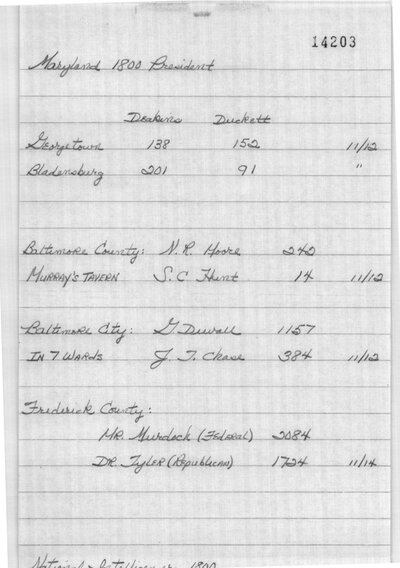 14203
Maryland 1800 President
Deakins Duckett
Georgetown 138 152 11/12
Bladensburg 201 91 "
Baltimore County: N. R. Moore 242
MURRAY'S TAVERN S. C. Hunt 14 11/12
Baltimore City: G. Duvall 1157
IN 7 WARDS J. T. Chase 384 11/12
Frederick County:
MR. Murdock (FEDERAL) 2084
DR. Tyler (Republican) 1724 11/14
National Intelligencer 1800